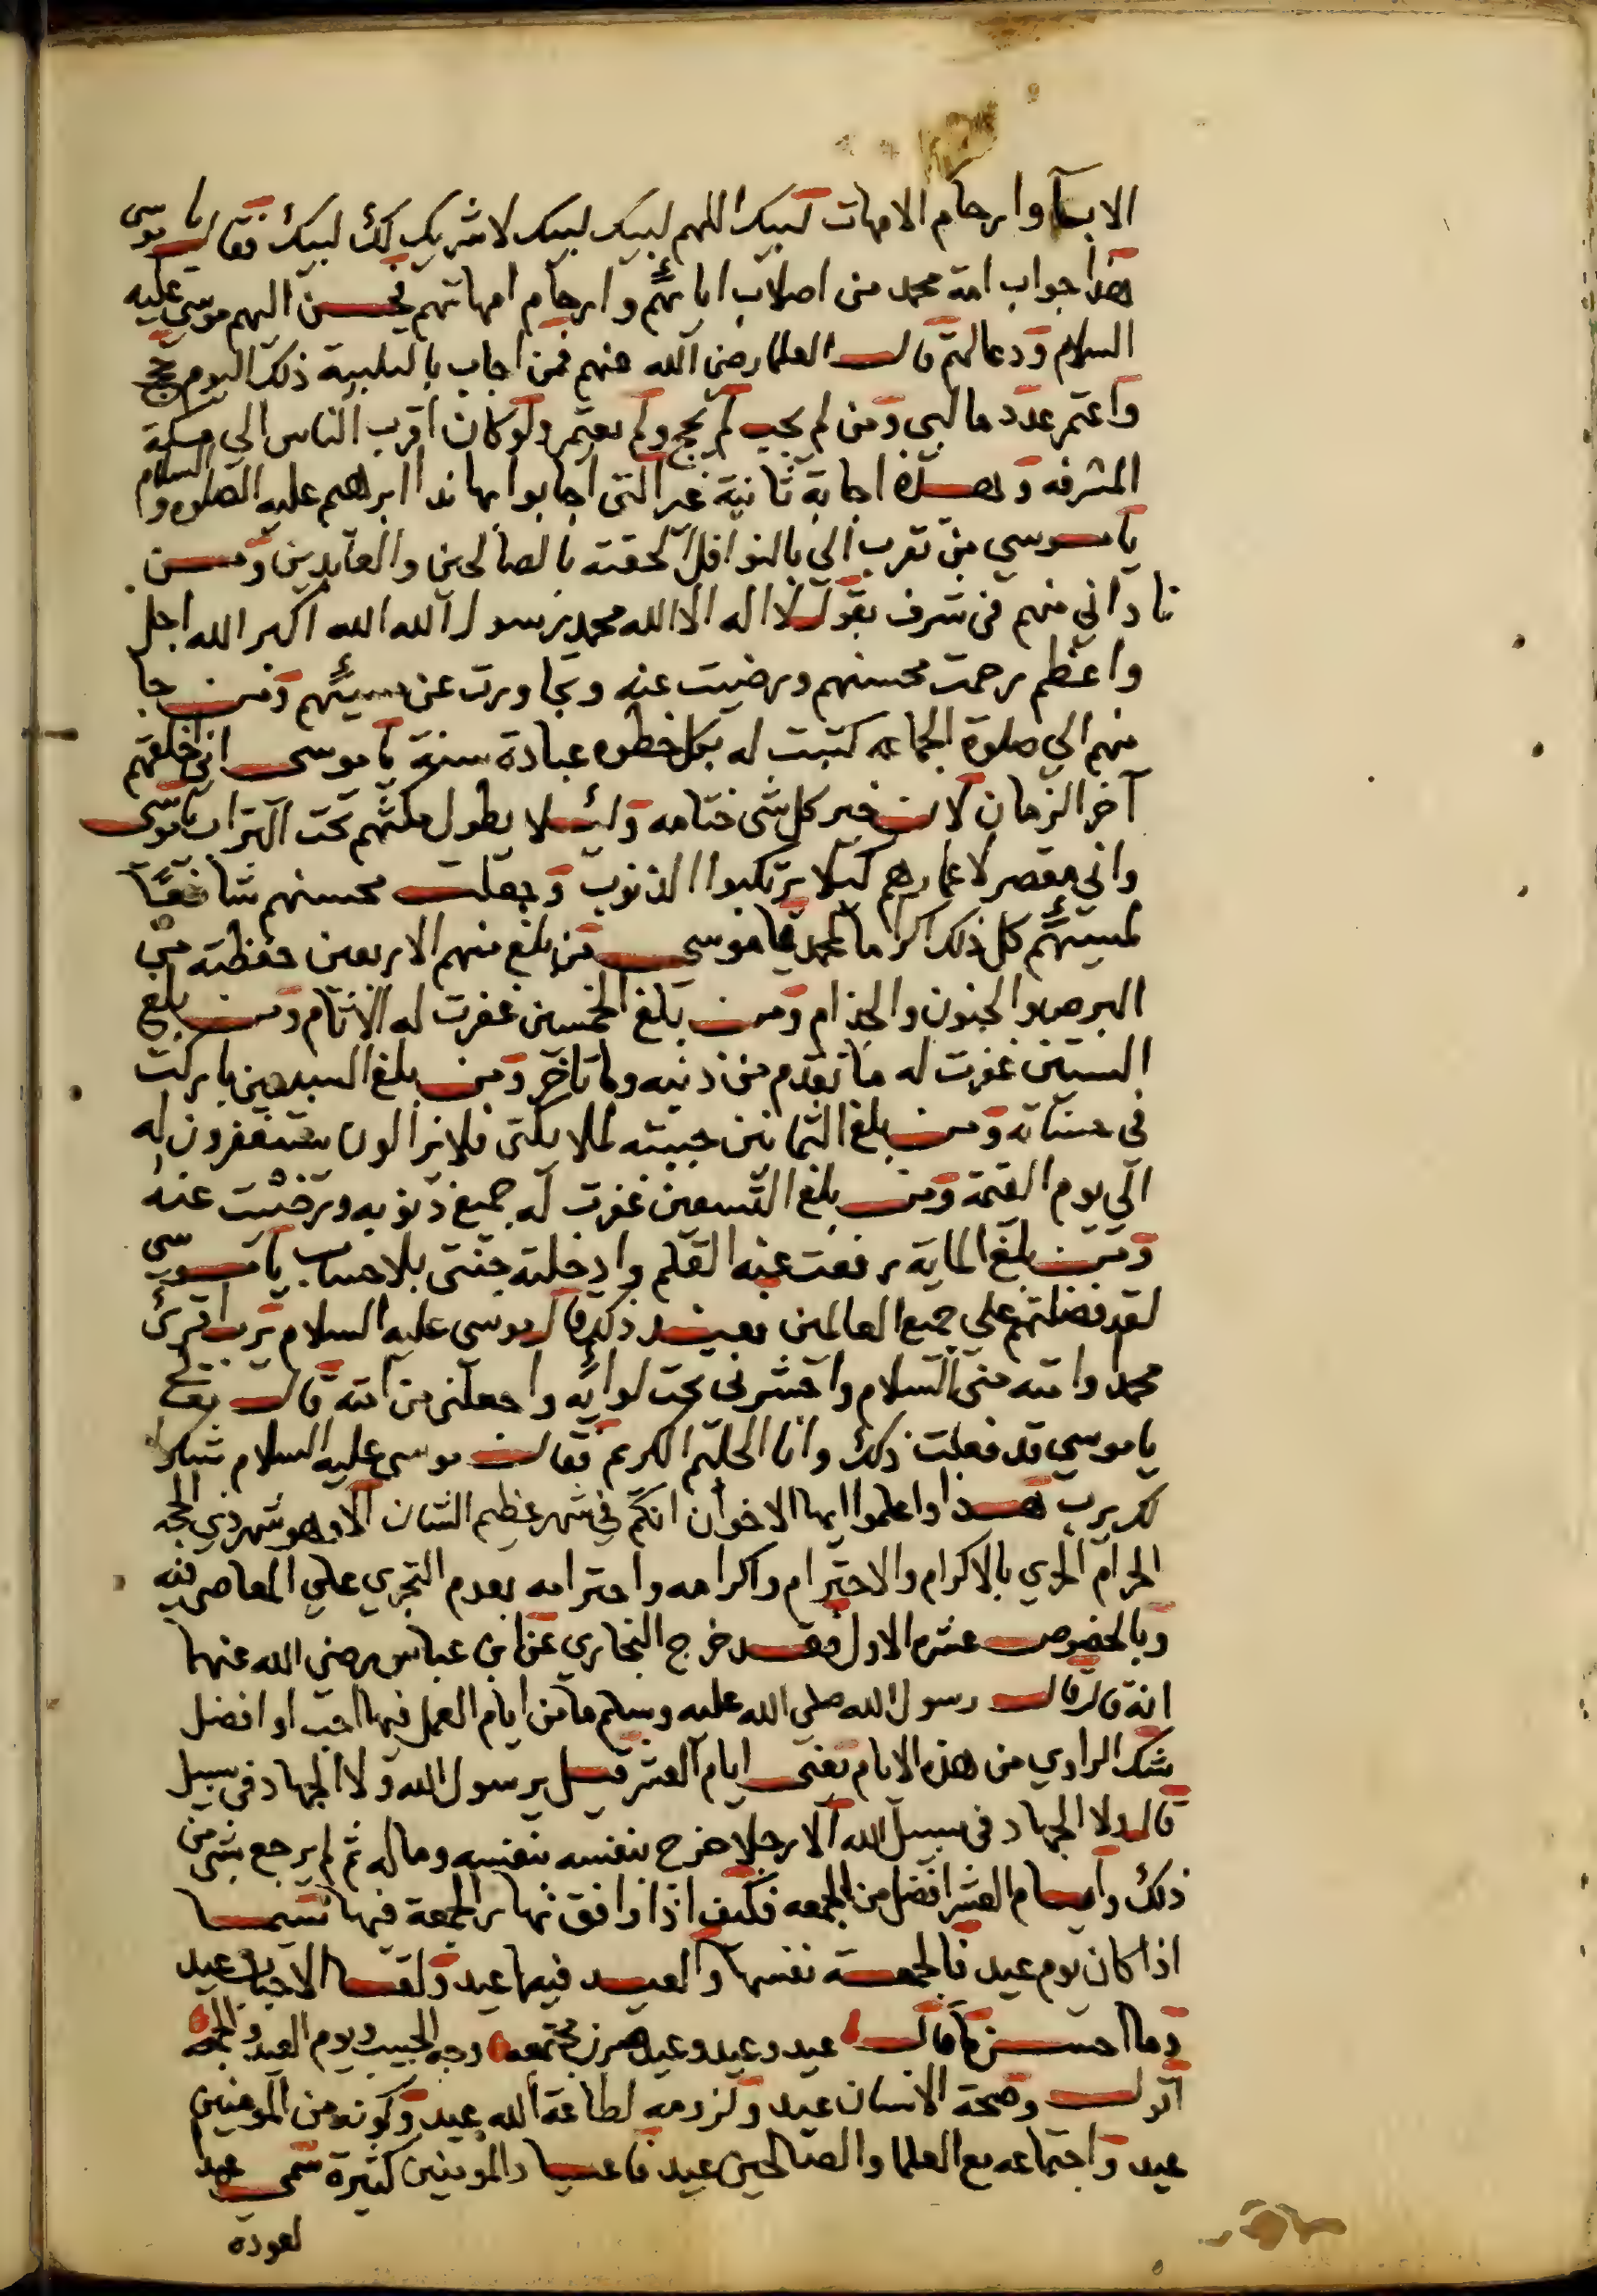 الابآ وارحام الامهات لبيك اللهم لبيك لبيك لا شريك لك لبيك فقال يا موسى
هذا جواب امة محمد من اصلاب ابائهم وارحام امهاتهم فحسن اليهم موسى عليه
السلام ودعا لهم قال العلما رضي الله عنهم فمن اجاب بالتلبية ذلك اليوم حج
واعتمر عدد ما لبى ومن لم يجب لم يحج ولم يعتمر ولو كان اقرب الناس الي مكة
المشرفه وهذه اجابة ثانية غير التى اجابوا بها ندا ابرهيم عليه الصلوه والسلام
يا موسي من تقرب الى بالنوافل الحقته بالصالحين والعابدين ومن
ناداني منهم في شرف بقول لا اله الا الله محمد رسول الله الله اكبر الله اجل
واعظم رحمت محسنهم ورضيت عنه وتجاوزت عن مسيئهم ومن جا
منهم الي صلوة الجماعه كتبت له بكل خطوه عبادة سنة يا موسى اني خلقتهم
آخر الزمان لان خير كل شى ختامه ولئلا يطول مكثهم تحت التراب يا موسى
واني مقصر لاعمارهم كيلا يرتكبوا الذنوب وجعلت محسنهم شافعًا
لمسيئهم كل ذلك اكراما لمحمد يا موسى من بلغ منهم الاربعين حفظته من
البرص والجنون والجذام ومن بلغ الخمسين غفرت له الاثام ومن بلغ
الستين غفرت له ما تقدم من ذنبه وما تاخر ومن بلغ السبعين باركت
في حسناته ومن بلغ الثمانين حببته لملايكتى فلا يزالون يستغفرون له
الى يوم القيمة ومن بلغ التسعين غفرت له جميع ذنوبه ورضيت عنه
ومن بلغ الماية رفعت عنه القلم وادخلته جنتى بلا حساب يا موسي
لقد فضلتهم علي جميع العالمين فعند ذلك قال موسى عليه السلام رب اقرئ
محمدا وامته منى السلام واحشرنى تحت لوايه واجعلنى من امته قال
يا موسي قد فعلت ذلك وانا الحليم الكريم فقال موسى عليه السلام شكرا
لك يرب هذا واعلموا ايها الاخوان انكم في شهر عظيم الشان الا وهو شهر ذي الحجه
الحرام الحري بالاكرام والاحترام واكرامه واحترامه بعدم التجري علي المعاصى فيه
وبالخصوص عشره الاول فقد خرج البخاري عن ابن عباس رضي الله عنهما
انه قال قال رسول الله صلي الله عليه وسلم ما من ايام العمل فيها احب او افضل
شك الراوي من هذه الايام يعنى ايام العشر قيل يرسول الله ولا الجهاد في سبيل
قال ولا الجهاد في سبيل الله الا رجلا خرج بنفسه بنفسه وماله ثم لم يرجع بشى من
ذلك وايام العشر افضل من الجمعه فكيف اذا وافق نهار الجمعة فيها سيما
اذا كان يوم عيد فالجمعة نفسها والعيد فيها عيد ولقا الاحباب عيد
وما احسن ما قال عيد وعيد وعيد صرن مجتمعه وجه الحبيب ويوم العيد والجمعه
اقول وصحة الانسان عيد ولزومه لطاعة الله عيد وكونه من المومنين
عيد واجتماعه مع العلما والصالحين عيد فاعياد المومنين كثيرة سمى عيد
لعوده